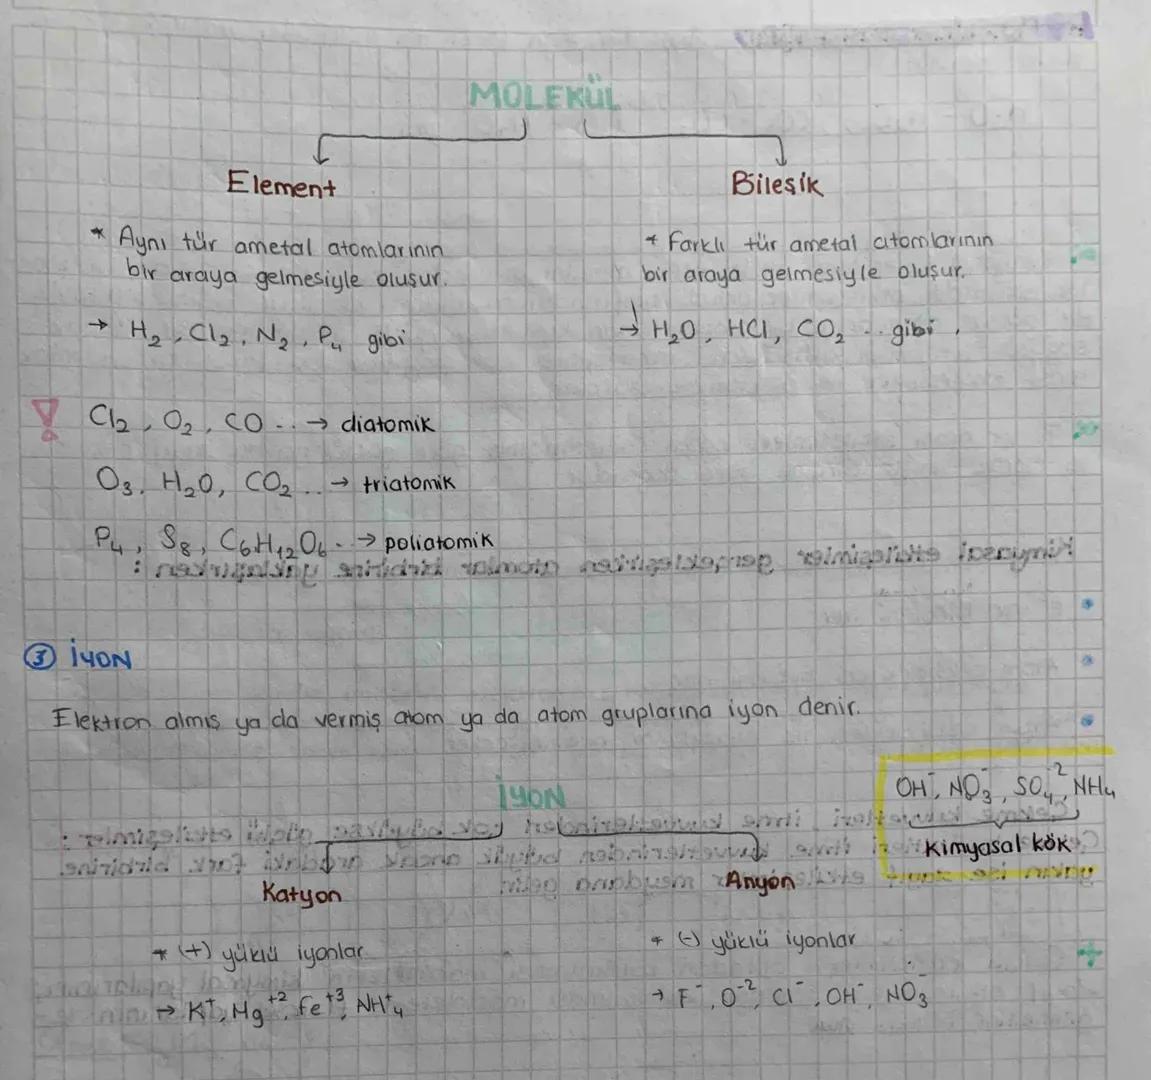 MOLEKÜL
Element
Bileşik
* Aynı tür ametal atomlarının
bir araya gelmesiyle oluşur.
→ H₂, Cl₂, N₂, P₄ gibi
* Farklı tür ametal atomlarının
bir araya gelmesiyle oluşur.
→ H₂O, HCl, CO₂ .. gibi.
! Cl₂, O₂, CO .. → diatomik
O₃, H₂O, CO₂ .. → triatomik
P₄, S₈, C₆H₁₂O₆ .. → poliatomik
③ İYON
Elektron almış ya da vermiş atom ya da atom gruplarına iyon denir.
OH⁻, NO₃⁻, SO₄⁻², NH₄
Kimyasal kök
İYON
Katyon
Anyon
* (+) yüklü iyonlar
→ K⁺, Mg⁺², Fe⁺³, NH⁺₄
* (-) yüklü iyonlar
→ F⁻, O⁻², Cl⁻, OH⁻, NO₃⁻